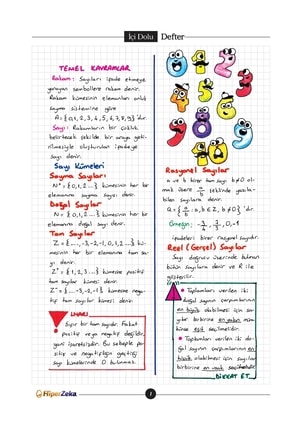 İçi Dolu Defter
TEMEL KAVRAMLAR
Rakam: Sayıları ifade etmeye
yarayan sembollere rakam denir.
Rakam kümesinin elemanları onluk
sayma sistemine göre
A={0,1,2,3,4,5,6,7,8,9}'dır.
Sayı: Rakamların bir çokluk
belirtecek şekilde bir araya geti-
rilmesiyle oluşturulan ifadeye
sayı denir.
Sayı Kümeleri
Sayma Sayıları:
kümesinin her bir
elemanına sayma sayısı denir.
Doğal Sayılar
N = {0,1,2...} kümesinin her bir
elemanına doğal sayı denir.
Tam Sayılar
Z = {...,-3,-2,-1,0,1,2...} kü-
mesinin her bir elemanına tam sa-
yı denir.
Z⁺ = {1,2,3...} kümesine pozitif
tam sayılar kümesi denir.
Z⁻ = {...-3,-2,-1} kümesine nega-
tif tam sayılar kümesi denir.
UYARI
Sıfır bir tam sayıdır. Fakat
pozitif veya negatif değildir,
yani işaretsizdir. Bu sebeple po-
zitif ve negatifliğin geçtiği
sayı kümelerinde 0 bulunmaz.
Rasyonel Sayılar
a ve b birer tam sayı b≠0 ol-
mak üzere a/b şeklinde yazıla-
bilen sayılara denir.
Q = {a/b : a,b∈Z, b≠0}'dır.
Örneğin:
ifadeleri birer rasyonel sayıdır.
Reel (Gerçel) Sayılar
Sayı doğrusu üzerinde bulunan
bütün sayılara denir ve R ile
gösterilir.
• Toplamları verilen iki
doğal sayının çarpımlarının
en büyük olabilmesi için sayı-
lar birbirine en yakın
seçilmelidir.
• Toplamları verilen iki do-
ğal sayının çarpımlarının en
küçük olabilmesi için sayılar
birbirine en uzak seçilmelidir.
DİKKAT ET...
HiperZeka
1